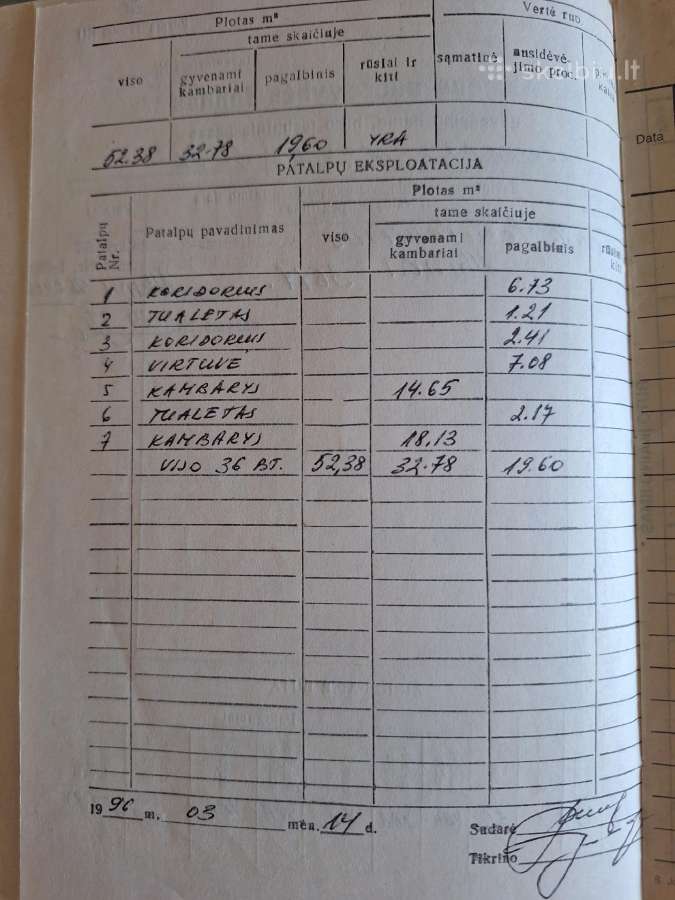 Plotas m² Vertė rub.
tame skaičiuje
viso gyvenami kambariai pagalbinis rūsiai ir kiti sąmatinė nusidėvė-jimo proc.
skelbiu.lt
Data
52.38 32.78 19,60 YRA
PATALPŲ EKSPLOATACIJA
Plotas m²
tame skaičiuje
Patalpų Nr. Patalpų pavadinimas viso gyvenami kambariai pagalbinis rūsiai kiti
1 KORIDORIUS 6.73
2 TUALETAS 1.21
3 KORIDORIUS 2.41
4 VIRTUVĖ 7.08
5 KAMBARYS 14.65
6 TUALETAS 2.17
7 KAMBARYS 18,13
VISO 36 BT. 52,38 32.78 19.60
1996 m. 03 mėn. 14 d.
Sudarė
Tikrino